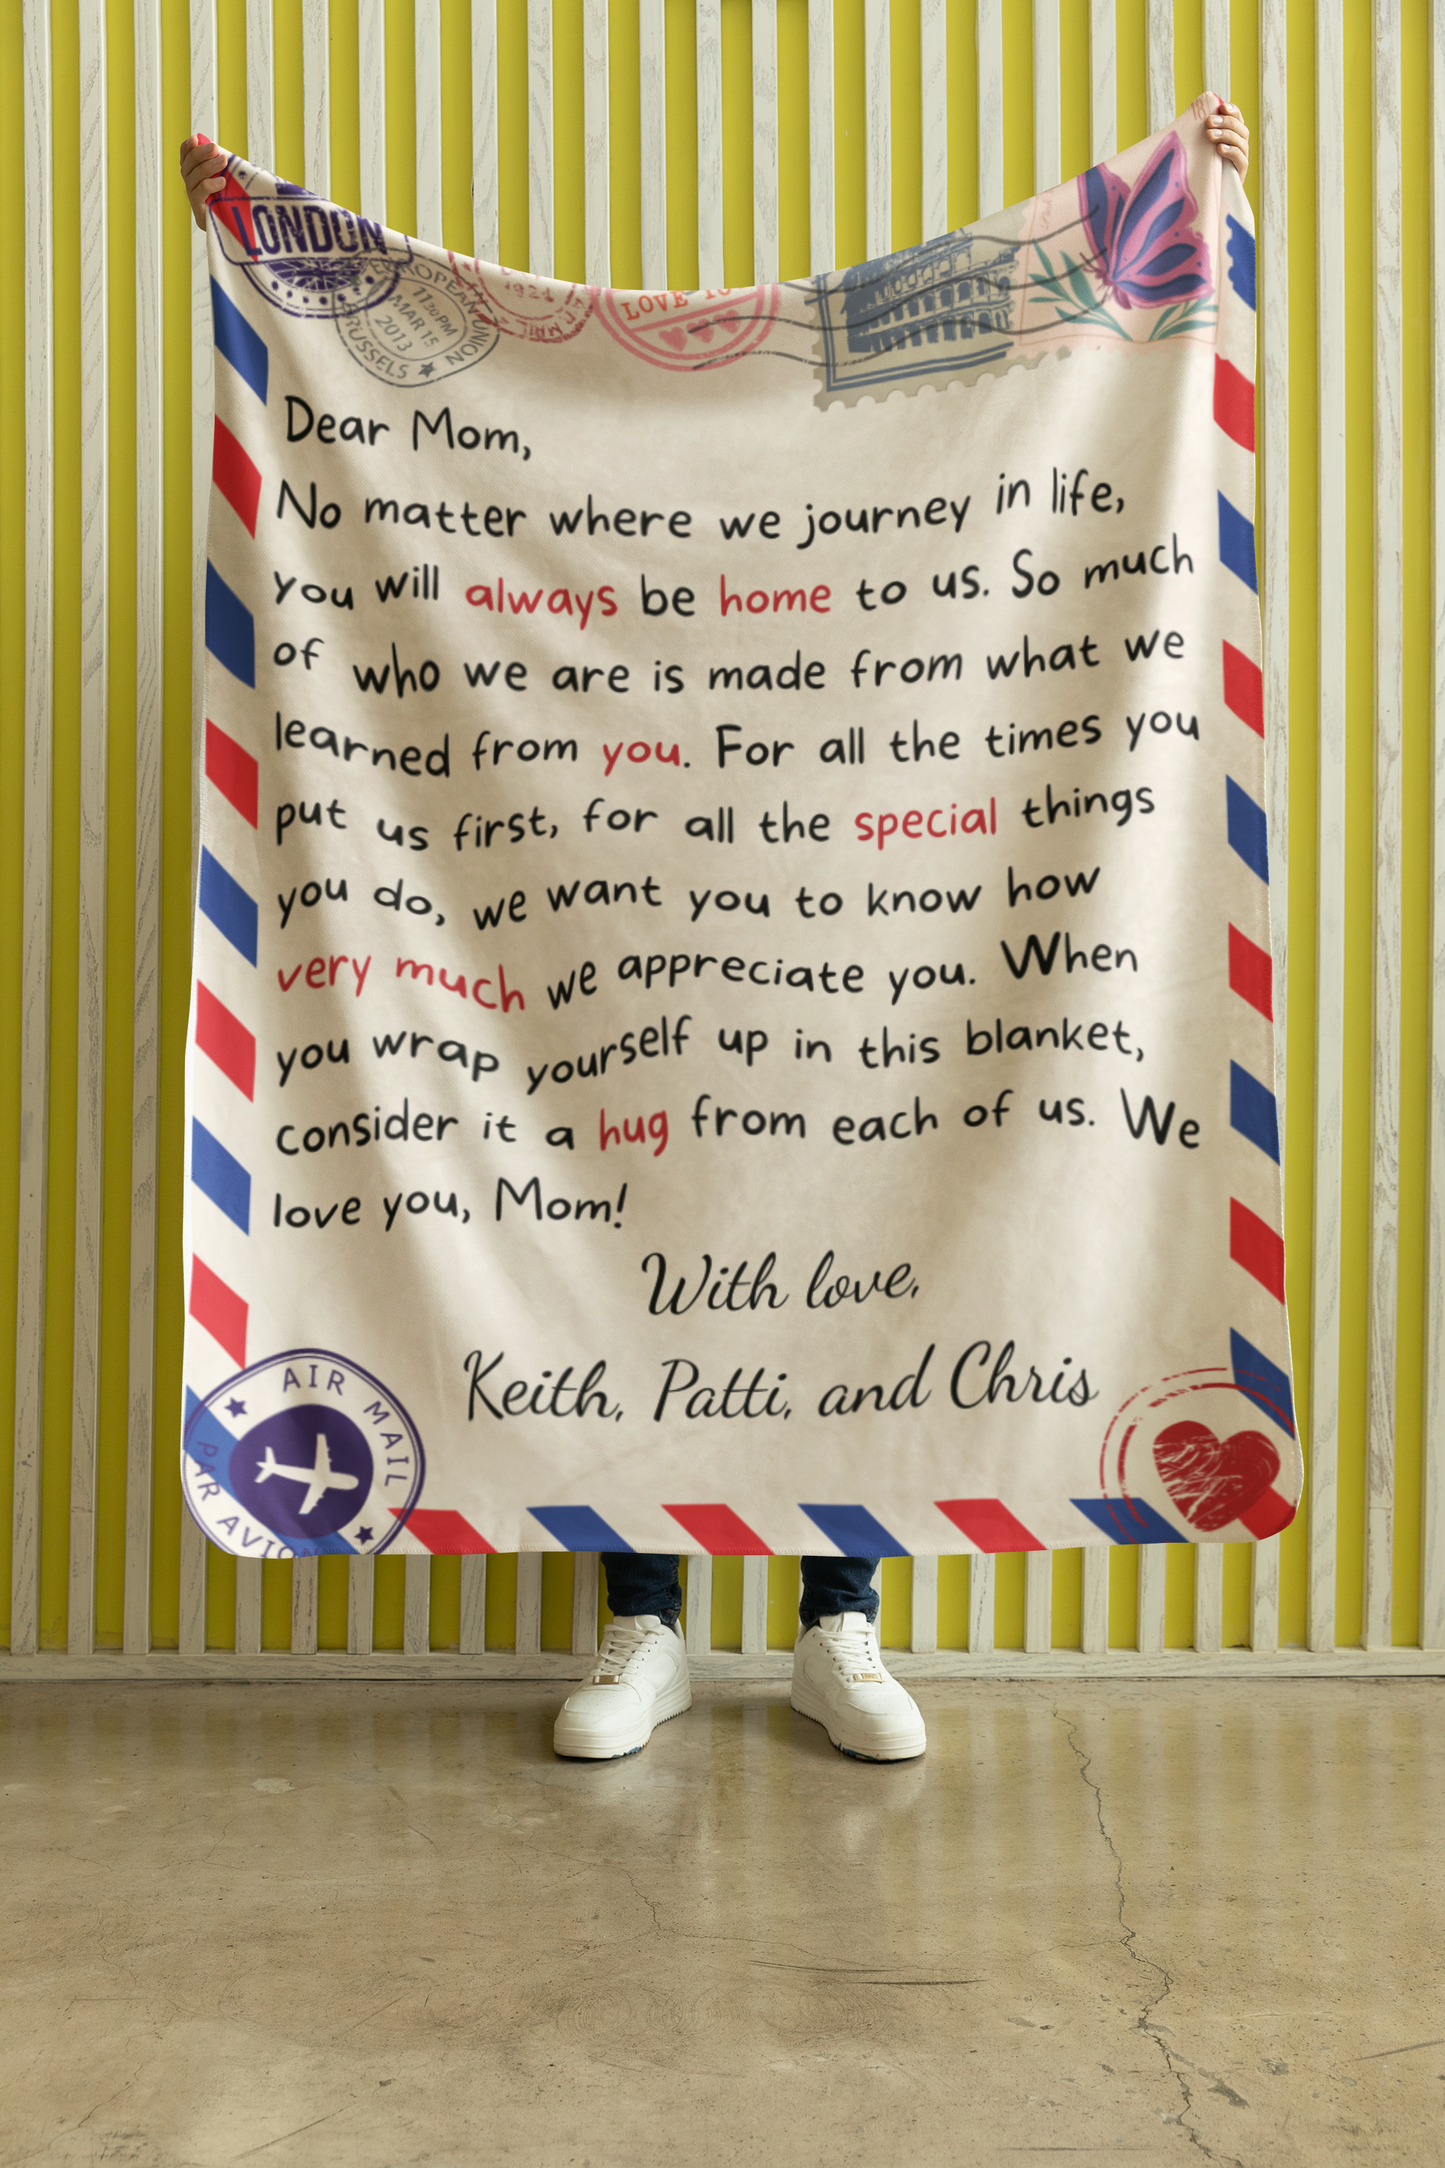 LONDON
EUROPEAN UNION
11:30PM
MAR 15
2013
BRUSSELS
1924
MAIL
LOVE TO
Dear Mom,
No matter where we journey in life,
you will always be home to us. So much
of who we are is made from what we
learned from you. For all the times you
put us first, for all the special things
you do, we want you to know how
very much we appreciate you. When
you wrap yourself up in this blanket,
consider it a hug from each of us. We
love you, Mom!
With love,
Keith, Patti, and Chris
AIR MAIL
PAR AVION